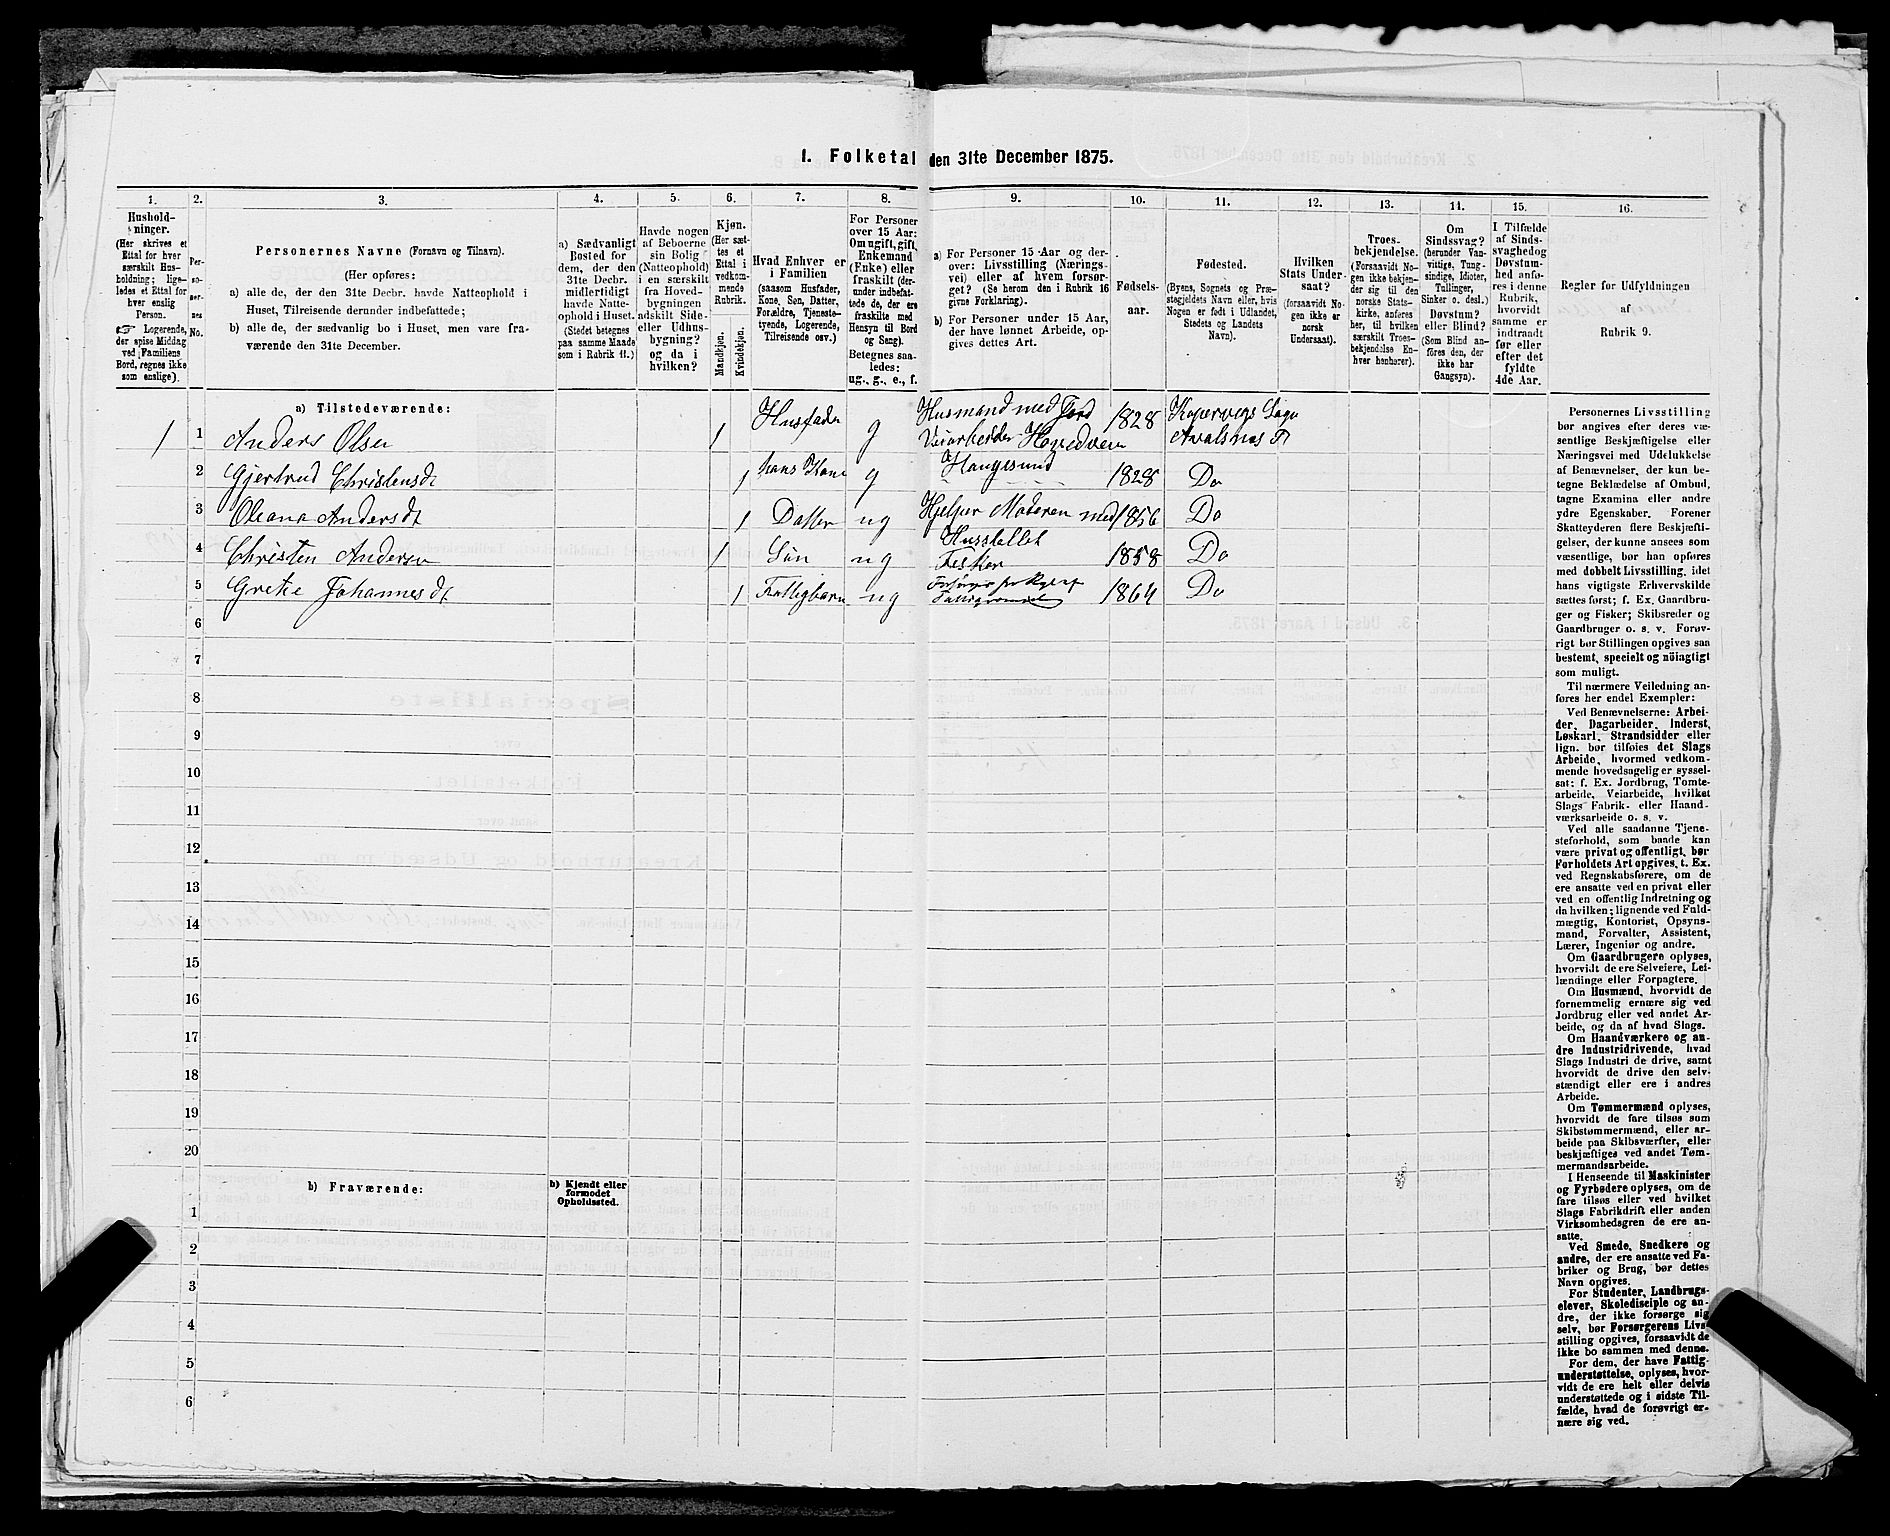 1. Folketal den 31te December 1875.
1.
2.
3.
4.
5.
6.
7.
8.
9.
10.
11.
12.
13.
14.
15.
16.
Hushold-
ninger.
(Her skrives et
Ettal for hver
særskilt Hus-
holdning; lige-
ledes et Ettal for
hver enslig
Person.
Logerende,
der spise Middag
ved Familiens
Bord, regnes ikke
som enslige).
Per-
so-
ner-
nes
No.
Personernes Navne (Fornavn og Tilnavn).
(Her opføres:
a) alle de, der den 31te Decbr. havde Natteophold i
Huset, Tilreisende derunder indbefattede;
b) alle de, der sædvanlig bo i Huset, men vare fra-
værende den 31te December.
a) Sædvanligt
Bosted for
dem, der den
31te Decbr.
midlertidigt
havde Natte-
ophold i Huset.
(Stedet betegnes
paa samme Maade
som i Rubrik 11.)
Havde nogen
af Beboerne
sin Bolig
(Natteophold)
i en særskilt
fra Hoved-
bygningen
adskilt Side-
eller Udhus-
bygning?
og da i
hvilken?
Kjøn.
(Her sæt-
tes et
Ettal i
vedkom-
mende
Rubrik.
Mandkjøn.
Kvindekjøn.
Hvad Enhver er
i Familien
(saasom Husfader,
Kone, Søn, Datter,
Forældre, Tjeneste-
tyende, Logerende,
Tilreisende osv.)
For Personer
over 15 Aar:
Om ugift, gift,
Enkemand
(Enke) eller
fraskilt (der-
under indbefat-
tede de, der ere
fraskilte med
Hensyn til Bord
og Seng).
Betegnes saa-
ledes:
ug., g., e., f.
a) For Personer 15 Aar og der-
over: Livsstilling (Nærings-
vei) eller af hvem forsør-
get? (Se herom den i Rubrik 16
givne Forklaring).
b) For Personer under 15 Aar,
der have lønnet Arbeide, op-
gives dettes Art.
Fødsels-
aar.
Fødested.
(Byens, Sognets og Præ-
stegjeldets Navn eller, hvis
Nogen er født i Udlandet,
Stedets og Landets
Navn).
Hvilken
Stats Under-
saat?
(forsaavidt No-
gen ikke er
norsk
Undersaat).
Troes-
bekjendelse.
(Forsaavidt No-
gen ikke bekjen-
der sig til den
norske Stats-
kirke, anføres
her, til hvilken
særskilt Troes-
bekjendelse En-
hver henhører).
Om
Sindssvag?
(herunder Van-
vittige, Tung-
sindige, Idioter,
Tullinger,
Sinker o. desl.)
Døvstum?
eller Blind?
(Som Blind an-
føres den, der
ikke har
Gangsyn).
I Tilfælde
af Sinds-
svaghed og
Døvstum-
hed anfø-
res i denne
Rubrik,
hvorvidt
samme er
indtraadt
før eller
efter det
fyldte
4de Aar.
Regler for Udfyldningen
af
Rubrik 9.
a) Tilstedeværende:
1 1 Anders Olsen 1 Husfader g Husmand med Jord Veiarbeider Hovedveien 1828 Kopervigs Sogn Avalsnes P
2 Gjertrud Christensdt 1 hans Kone g Haugesund 1828 Do
3 Oleana Andersdt 1 Datter ug Hjelper Moderen med Husstellet 1856 Do
4 Christen Andersen 1 Søn ug Fisker 1858 Do
5 Grete Johannesdt 1 Fattigbarn ug 1864 Do
6
7
8
9
10
11
12
13
14
15
16
17
18
19
20
b) Fraværende:
b) Kjendt eller
formodet
Opholdssted.
1
2
3
4
5
6
Personernes Livsstilling
bør angives efter deres væ-
sentlige Beskjæftigelse eller
Næringsvei med Udelukkelse
af Benævnelser, der kun be-
tegne Beklædelse af Ombud,
tagne Examina eller andre
ydre Egenskaber. Forener
Skatteyderen flere Beskjæfti-
gelser, der kunne ansees som
væsentlige, bør han opføres
med dobbelt Livsstilling, idet
hans vigtigste Erhvervskilde
sættes først; f. Ex. Gaardbru-
ger og Fisker; Skibsreder og
Gaardbruger o. s. v. Forøv-
rigt bør Stillingen opgives saa
bestemt, specielt og nöiagtigt
som muligt.
Til nærmere Veiledning an-
føres her endel Exempler:
Ved Benævnelserne: Arbei-
der, Dagarbeider, Inderst,
Løskarl, Strandsidder eller
lign. bør tilføies det Slags
Arbeide, hvormed vedkom-
mende hovedsagelig er syssel-
sat; f. Ex. Jordbrug, Tomte-
arbeide, Veiarbeide, hvilket
Slags Fabrik- eller Haand-
værksarbeide o. s. v.
Ved alle saadanne Tjene-
steforhold, som baade kan
være privat og offentligt, bør
Forholdets Art opgives, t. Ex.
ved Regnskabsførere, om de
ere ansatte ved en privat eller
ved en offentlig Indretning og
da hvilken; lignende ved Fuld-
mægtig, Kontorist, Opsyns-
mand, Forvalter, Assistent,
Lærer, Ingeniør og andre.
Om Gaardbrugere oplyses,
hvorvidt de ere Selveiere, Lei-
lændinge eller Forpagtere.
Om Husmænd, hvorvidt de
fornemmelig ernære sig ved
Jordbrug eller ved andet Ar-
beide, og da af hvad Slags.
Om Haandværkere og an-
dre Industridrivende, hvad
Slags Industri de drive, samt
hvorvidt de drive den selv-
stændigt eller ere i andres
Arbeide.
Om Tømmermænd oplyses,
hvorvidt de fare tilsøs som
Skibstømmermænd, eller ar-
beide paa Skibsværfter, eller
beskjæftiges ved andet Tøm-
mermandsarbeide.
I Henseende til Maskinister
og Fyrbødere oplyses, om de
fare tilsøs eller ved hvilket
Slags Fabrikdrift eller anden
Virksomhedsgren de ere an-
satte.
Ved Smede, Snedkere og
andre, der ere ansatte ved Fa-
briker og Brug, bør dettes
Navn opgives.
For Studenter, Landbrugs-
elever, Skoledisciple og an-
dre, der ikke forsørge sig
selv, bør Forsørgerens Livs-
stilling opgives, forsaavidt de
ikke bo sammen med denne.
For dem, der have Fattig-
understøttelse, oplyses, hvor-
vidt de ere helt eller delvis
understøttede og i sidste Til-
fælde, hvad de forøvrigt er-
nære sig ved.